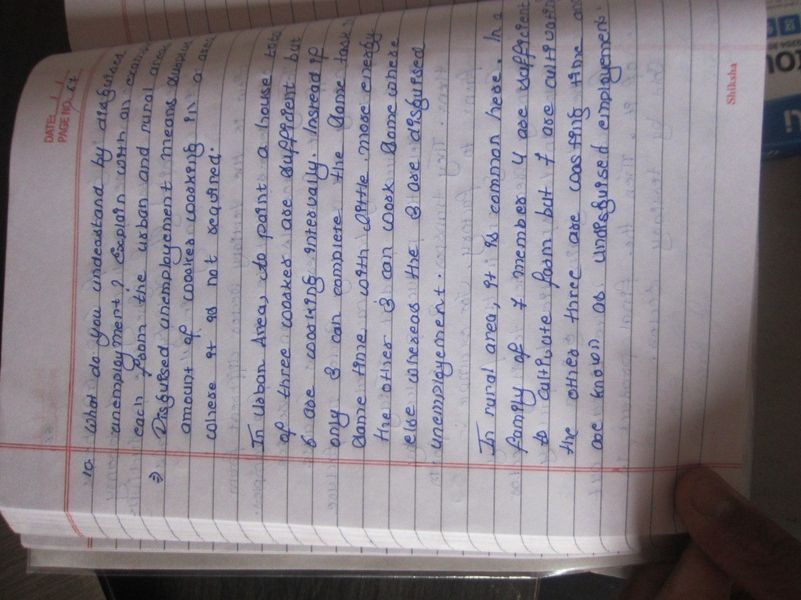 DATE: / /
PAGE NO.: 67
10. What do you understand by disguised
unemployment? Explain with an example
each from the urban and rural areas
⇒ Disguised unemployement means surplus
amount of worker working in a area
where it is not required.
In Urban Area, to paint a house total
of three worker are sufficient but
6 are working intervally. Instead if
only 3 can complete the same task
same time with little more energy
the other 3 can work some where
else whereas the 3 are disguised
unemployement.
In rural area, it is common here. In a
family of 7 member 4 are sufficient
to cultivate farm but 7 are cultivating
the other three are wasting time and
are known as undisguised employement.
Shiksha